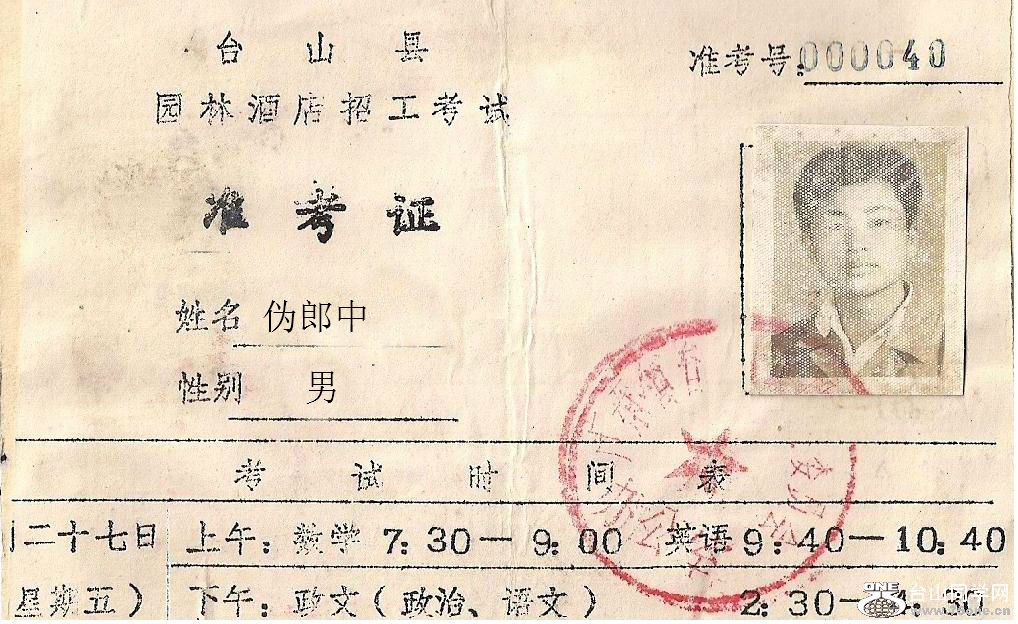 台山县
园林酒店招工考试
准考号:000040
准考证
姓名 伪郎中
性别 男
考试时间表
二十七日 上午:数学 7:30—9:00 英语 9:40—10:40
星期五) 下午:政文(政治、语文) 2:30—4:30
办公室
ONE 台山同学网